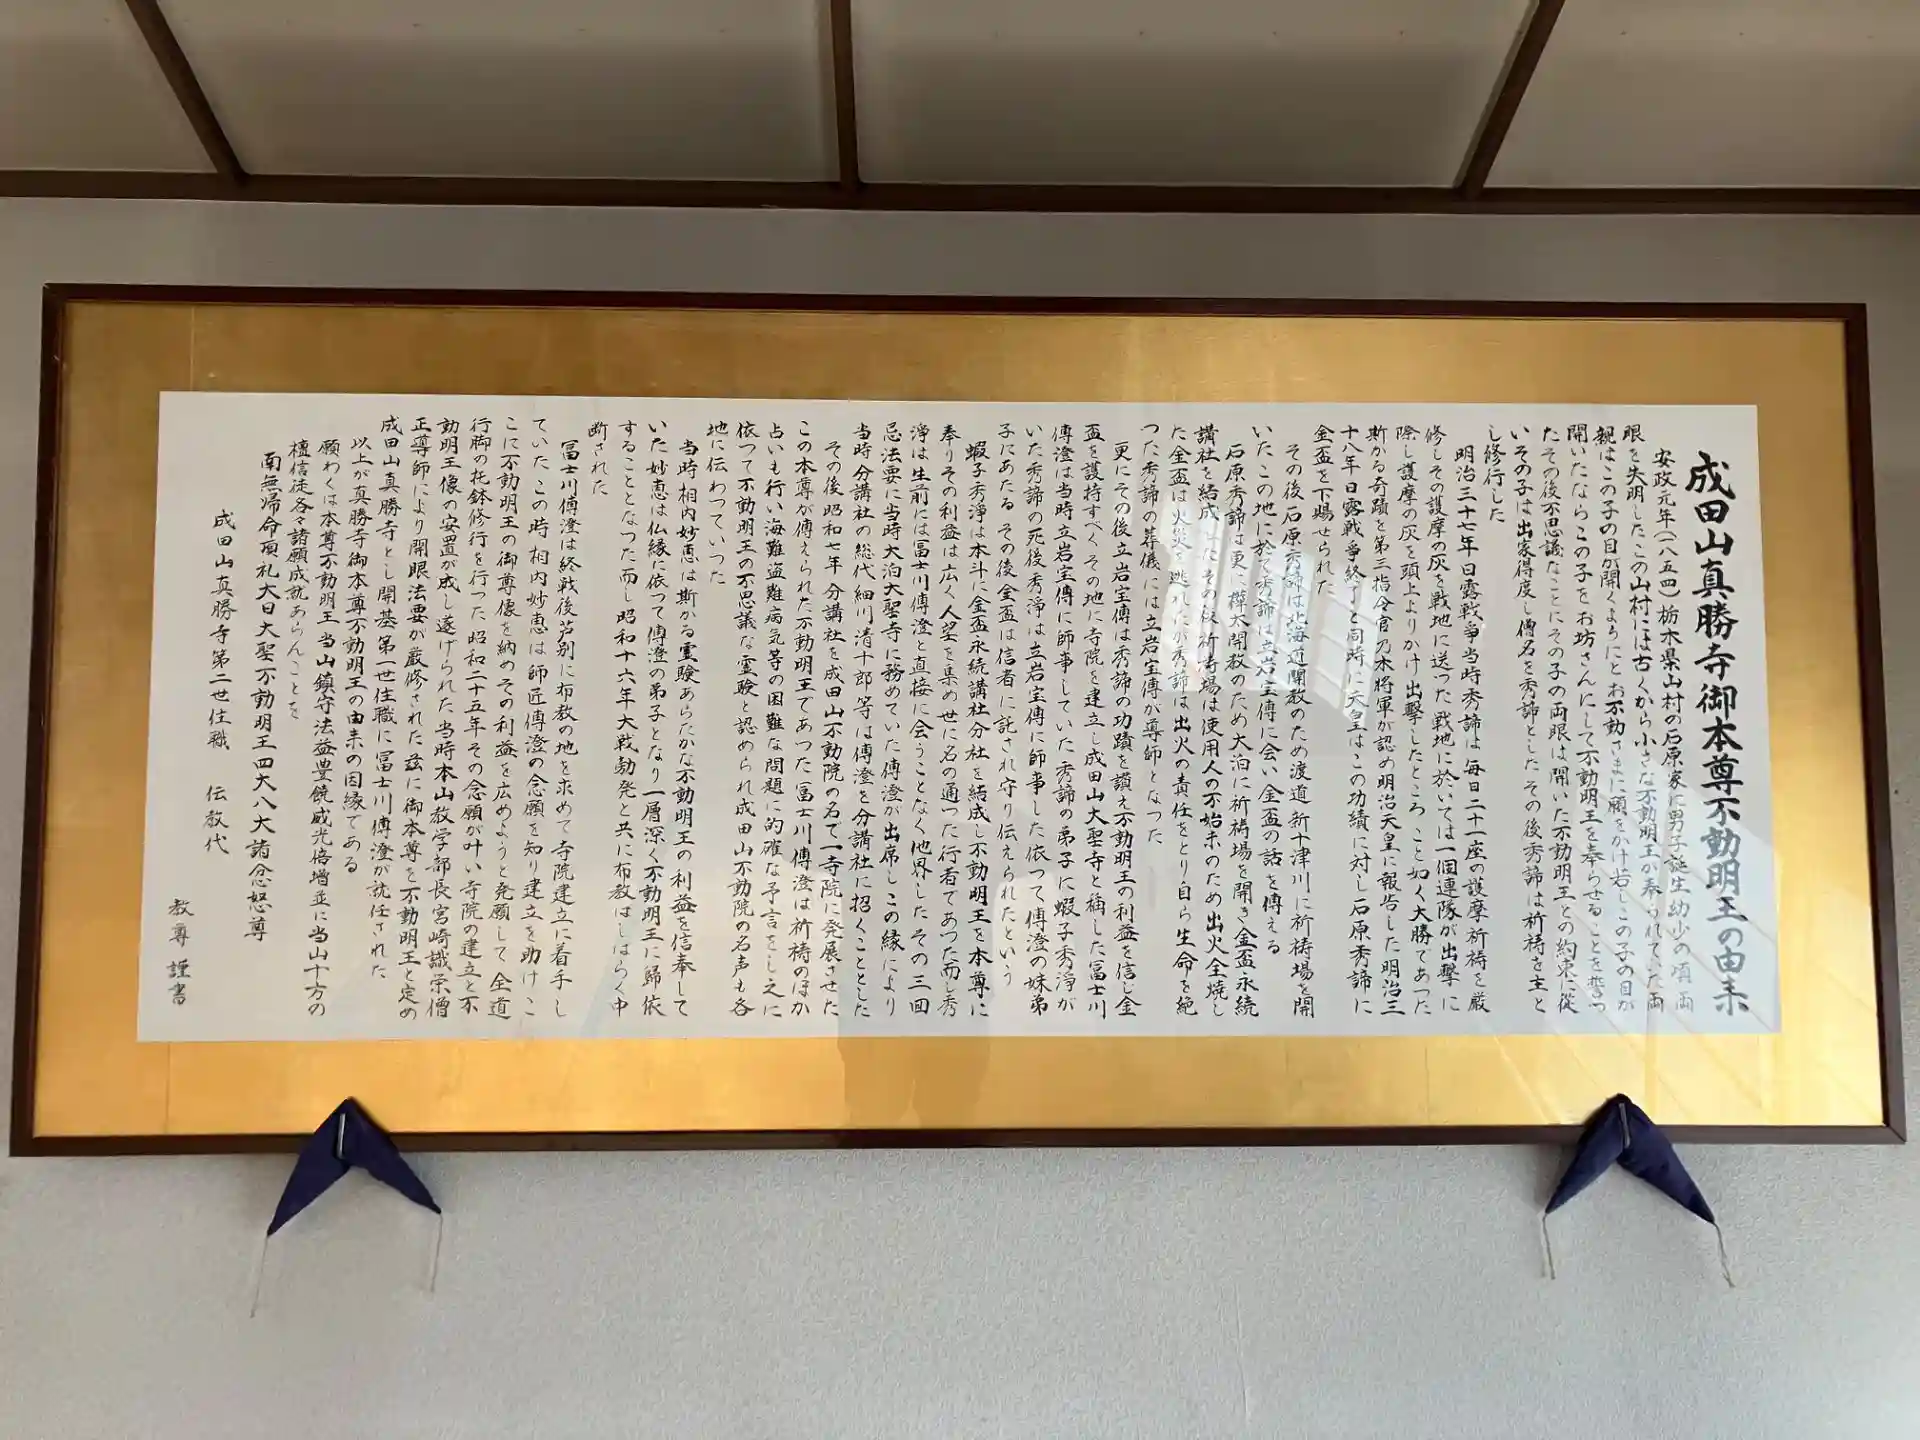 成田山真勝寺御本尊不動明王の由来
安政元年(一八五四)栃木県山村の石原家に男子誕生幼少の頃両
眼を失明したこの山村には古くから小さな不動明王が奉られてた両
親はこの子の目が開くようにとお不動さまに願をかけ若しこの子の目が
開いたならこの子をお坊さんにして不動明王を奉らせることを誓つ
たその後不思議なことにその子の両眼は開いた不動明王との約束に從
いその子は出家得度し僧名を秀諦としたその後秀諦は祈祷を主と
し修行した
明治三十七年日露戦争当時秀諦は毎日二十一座の護摩祈祷を厳
修しその護摩の灰を戦地に送った戦地に於いては一個連隊が出撃に
際し護摩の灰を頭上よりかけ出撃したところこと如く大勝であつた
斯かる奇蹟を第三指令官乃木将軍が認め明治天皇に報告した明治三
十八年日露戦争終了と同時に天皇はこの功績に対し石原秀諦に
金盃を下賜せられた
その後石原秀諦は北海道開教のため渡道新十津川に祈祷場を開
いたこの地に於て秀諦は立岩宝傳に会い金盃の話を傳える
石原秀諦は更に樺太開教のため大泊に祈祷場を開き金盃永続
講社を結成したその後祈祷場は使用人の不始末のため出火全焼し
た金盃は火災を逃れたが秀諦は出火の責任をとり自ら生命を絶
つた秀諦の葬儀には立岩宝傳が導師となつた
更にその後立岩宝傳は秀諦の功蹟を讃え不動明王の利益を信じ金
盃を護持すべくその地に寺院を建立し成田山大聖寺と稱した冨士川
傳澄は当時立岩宝傳に師事していた秀諦の弟子に蝦子秀淨が
いた秀諦の死後秀淨は立岩宝傳に師事した依つて傳澄の妹弟
子にあたるその後金盃は信者に託され守り伝えられたという
蝦子秀淨は本斗に金盃永続講社分社を結成し不動明王を本尊に
奉りその利益は広く人望を集め世に名の通った行者であつた而し秀
淨は生前には冨士川傳澄と直接に会うことなく他界したその三回
忌法要に当時大泊大聖寺に務めていた傳澄が出席しこの縁により
当時分講社の総代細川清十郎等は傳澄を分講社に招くこととした
その後昭和七年分講社を成田山不動院の名で一寺院に発展させた
この本尊が傳えられた不動明王であつた冨士川傳澄は祈祷のほか
占いも行い海難盗難病気等の困難な問題に的確な予言をし之に
依つて不動明王の不思議な霊験と認められ成田山不動院の名声も各
地に伝わつていつた
当時相内妙恵は斯かる霊験あらたかな不動明王の利益を信奉して
いた妙恵は仏縁に依つて傳澄の弟子となり一層深く不動明王に歸依
することとなつた而し昭和十六年大戦勃発と共に布教はしばらく中
断された
冨士川傳澄は終戦後芦別に布教の地を求めて寺院建立に着手し
ていたこの時相内妙恵は師匠傳澄の念願を知り建立を助けこ
こに不動明王の御尊像を納めその利益を広めようと発願して全道
行脚の托鉢修行を行つた昭和二十五年その念願が叶い寺院の建立と不
動明王像の安置が成し遂げられた当時本山教学部長宮崎識栄僧
正導師により開眼法要が厳修された茲に御本尊を不動明王と定め
成田山真勝寺とし開基第一世住職に冨士川傳澄が就任された
以上が真勝寺御本尊不動明王の由来の因縁である
願わくは本尊不動明王当山鎮守法益豊饒威光倍増並に当山十方の
檀信徒各々諸願成就あらんことを
南無帰命頂礼大日大聖不動明王四大八大諸忿怒尊
成田山真勝寺第二世住職 伝教代
教尊 謹書